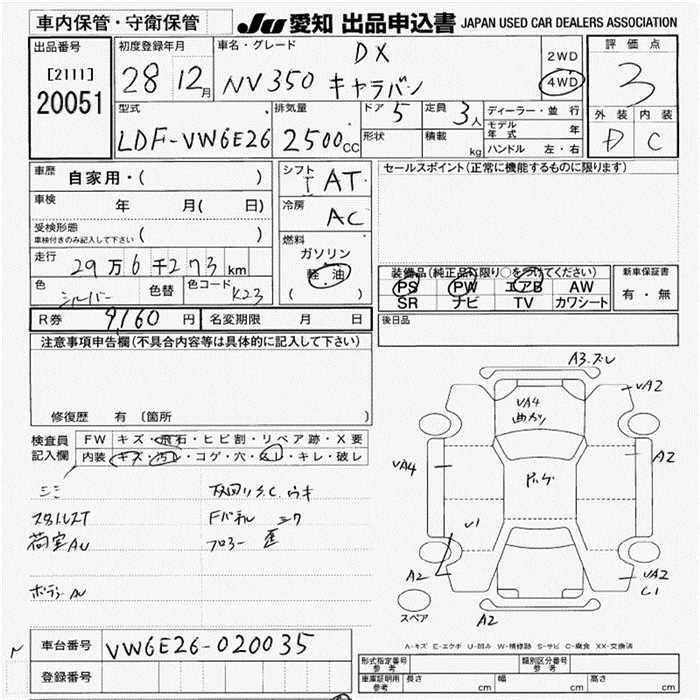 車内保管・守衛保管
JU 愛知 出品申込書 JAPAN USED CAR DEALERS ASSOCIATION
出品番号
[2111]
20051
初度登録年月
28 12月
車名・グレード
DX
NV350 キャラバン
2WD
4WD
評価点
3
外装 内装
D C
型式
LDF-VW6E26
排気量
2500cc
ドア 5
形状
定員 3人
積載 kg
ディーラー・並行
モデル年式 年
ハンドル 左・右
車歴 自家用・( )
車検 年 月( 日)
受検形態
車検付きのみ記入して下さい ( )
走行 29万6千273km
色 シルバー 色替 色コード K23
シフト I AT
冷房 AC
燃料
ガソリン
軽油
( )
セールスポイント(正常に機能するものに限ります)
装備品(純正品に限り○をつけてください)
PS PW エアB AW
SR ナビ TV カワシート
新車保証書
有・無
R券 9160円 名変期限 月 日
後日品
注意事項申告欄(不具合内容等は具体的に記入して下さい)
修復歴 有 (箇所 )
検査員
記入欄
FW キズ・飛石・ヒビ割・リペア跡・X要
内装 キズ・汚レ・コゲ・穴・スレ・キレ・破レ
荷室AU
A3.ズレ
VA2
VA4
曲がり
VA4
A2
U1
A2
VA2
C1
A2
スペア
A-キズ E-エクボ U-凹み W-補修跡 S-サビ C-腐食 XX-交換済
車台番号 VW6E26-020035
登録番号
型式指定番号
参考
類別区分番号
参考
車庫証明用
参考
長さ cm 幅 cm 高さ cm